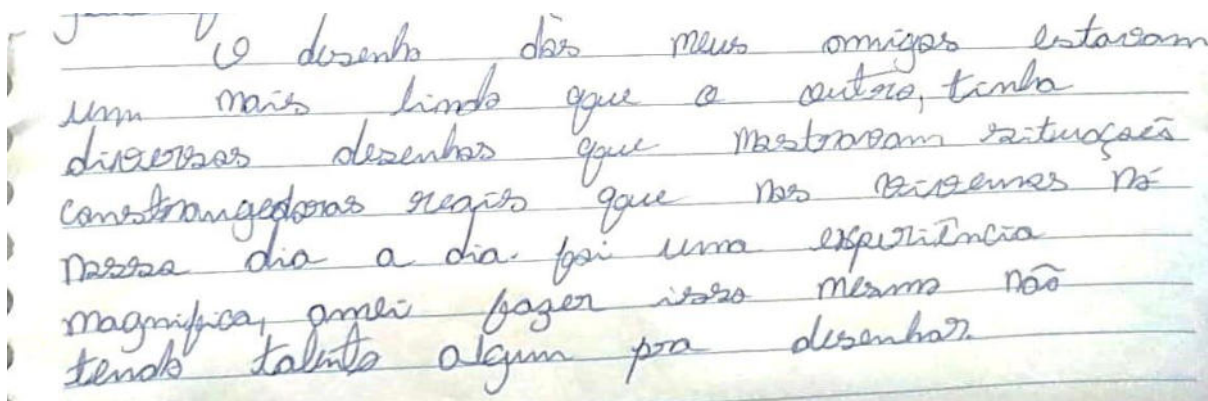 O desenho dos meus amigos estavam
um mais lindo que o outro, tinha
diversos desenhos que mostravam situações
constrangedoras reais que nos vivemos no
nosso dia a dia. foi uma experiência
magnifica, amei fazer isso mesmo não
tendo talento algum pra desenhar.